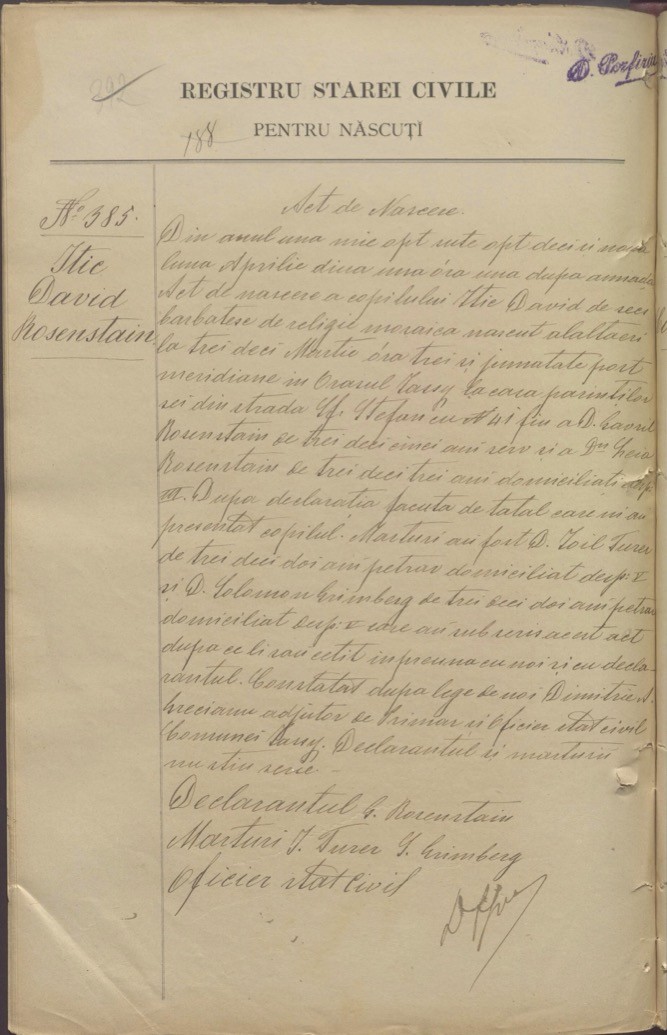 392
D. Porfiriu
REGISTRU STAREI CIVILE
188
PENTRU NĂSCUȚĬ
No 385.
Itic
David
Rosenstain
Act de Nascere.
Din anul una mie opt sute opt deci si noua
luna Aprilie diua una óra una dupa amiadi
Act de nascere a copilului Itic David de secs
barbatesc de religie mosaica nascut alaltaeri
la trei deci Martie óra trei si jumatate post
meridiane in Orasul Iassy la casa parintilor
sei din strada Sf. Stefan cu No 41 fiu a D.
Rosenstain de trei deci cinci ani si a Dnei
Rosenstain de trei deci trei ani domiciliati desp.
III. Dupa declaratia facuta de tatal care ni au
presentat copilul. Marturi au fost D. Ioil Turer
de trei deci doi ani petrar domiciliat desp. V
si D. Solomon Grimberg de trei deci doi ani petrar
domiciliat desp. V care au subscris acest act
dupa ce li sau cetit inpreuna cu noi si cu decla-
rantul. Constatat dupa lege de noi Dimitrie A.
Greceanu adjutor de Primar si Oficier stat civil
Comunei Iassy. Declarantul si marturii
nu stiu scrie -
Declarantul G. Rosenstain
Marturi I. Turer S. Grimberg
Oficier stat Civil